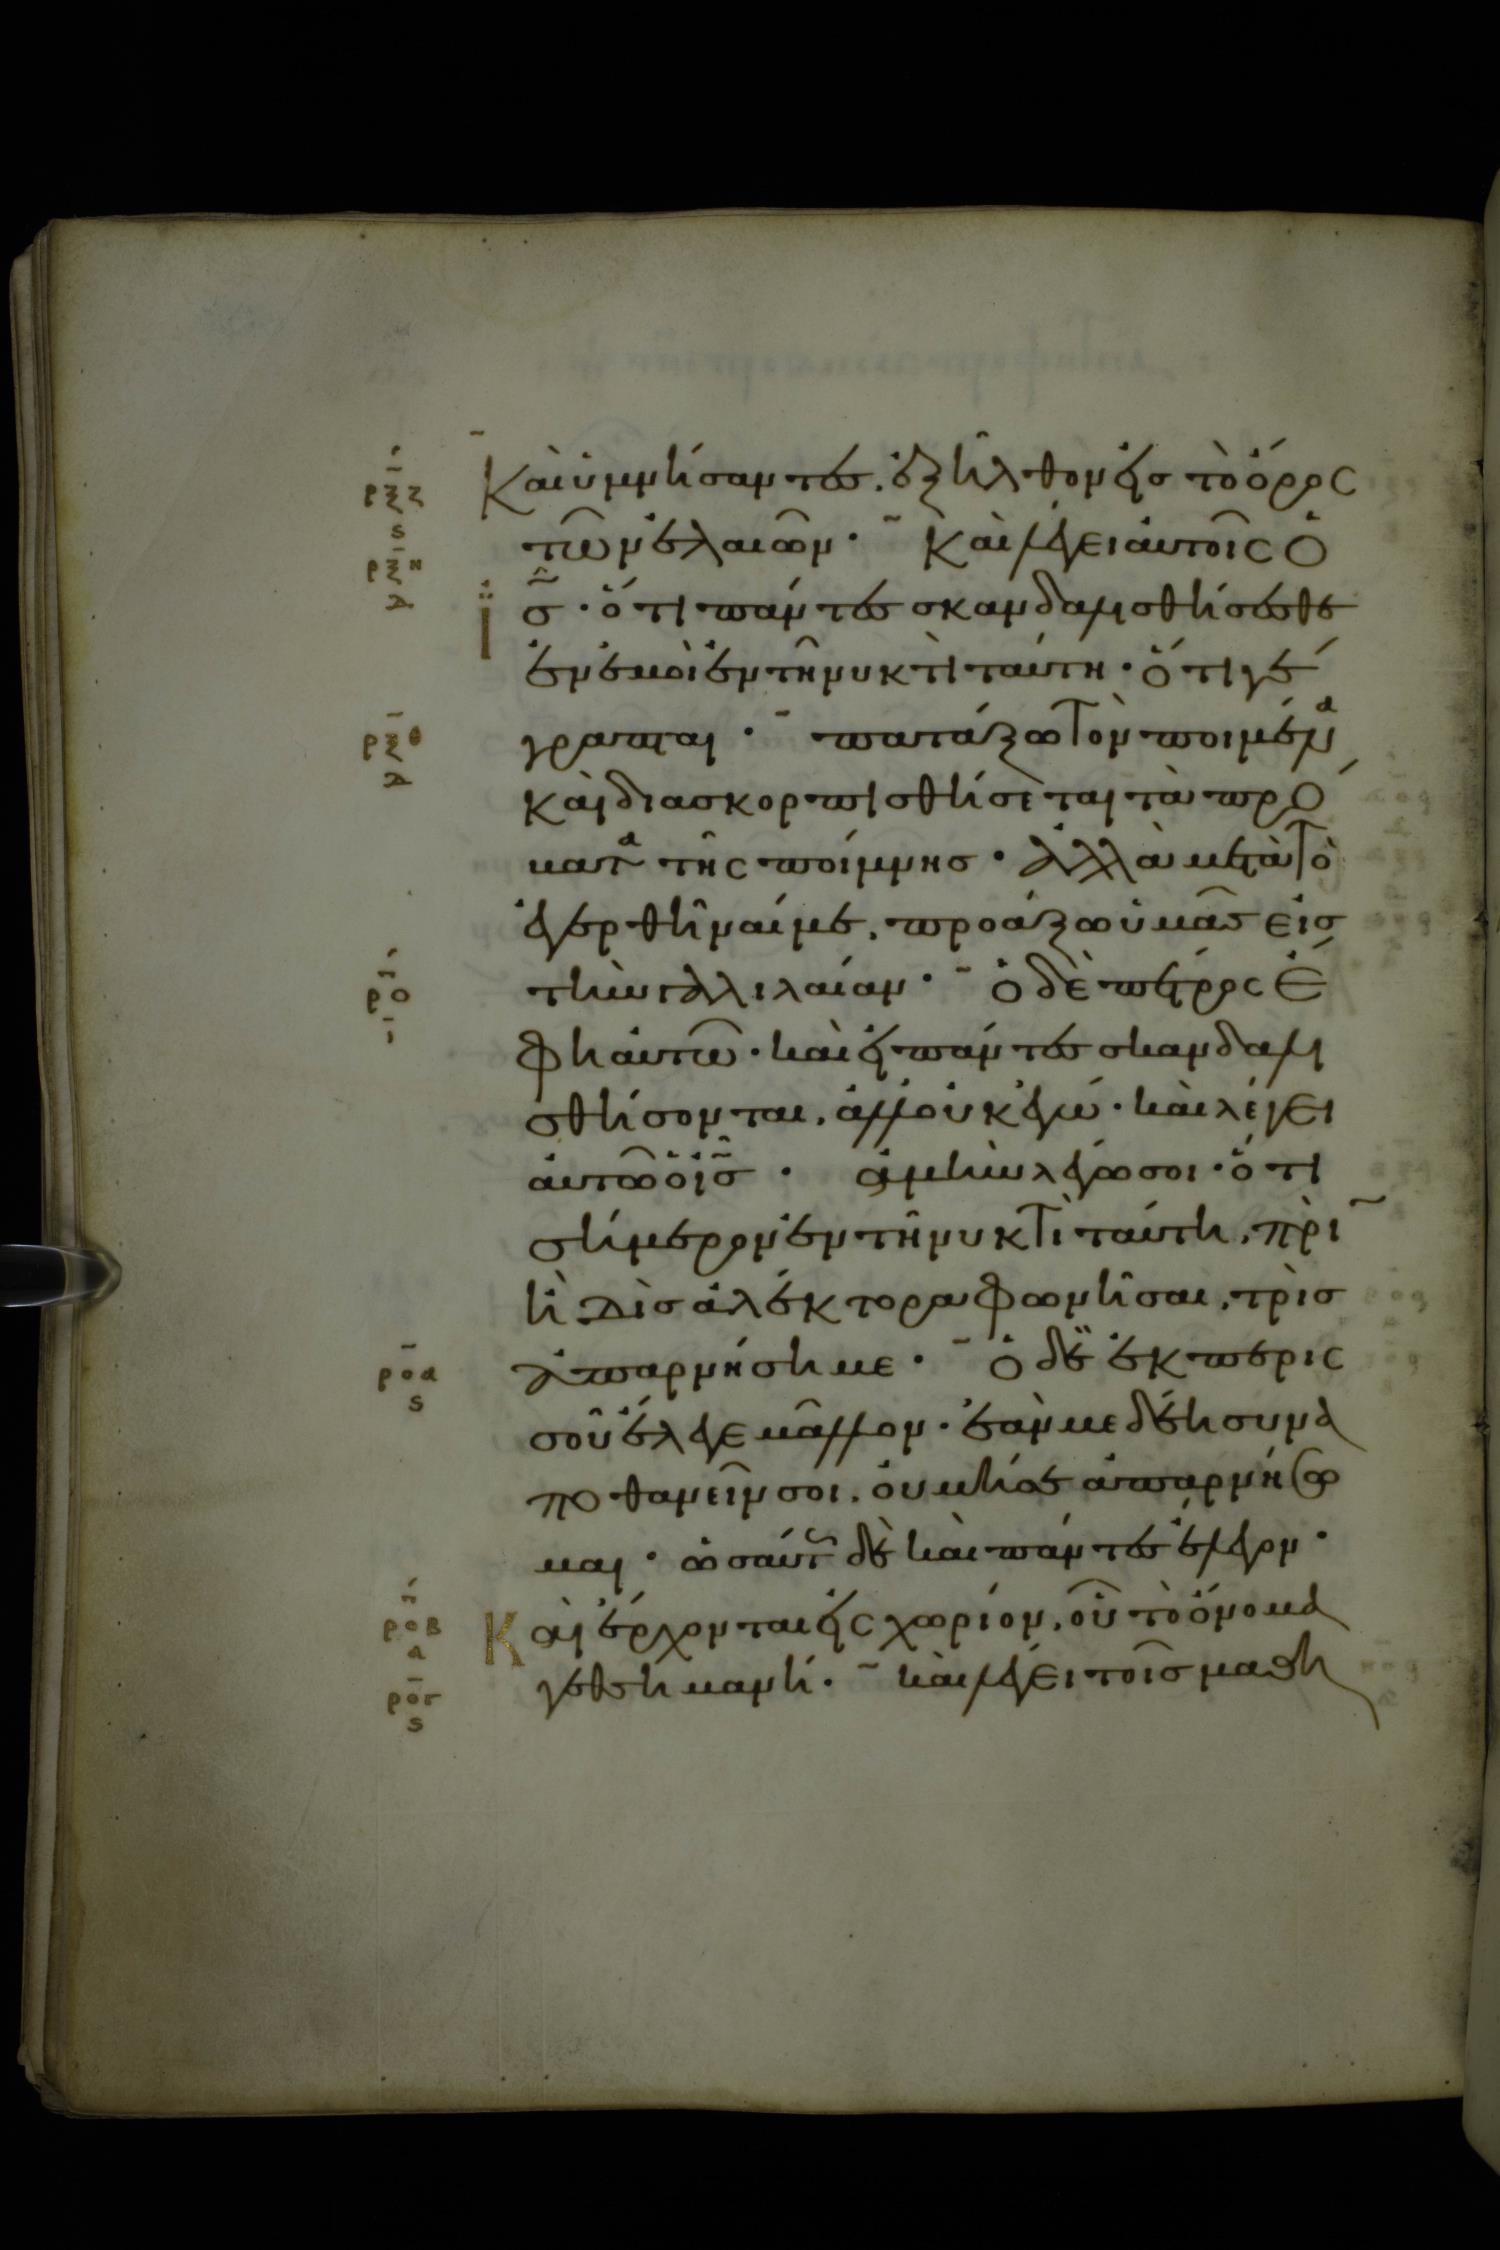 Καὶ ὑμνήσαντες. ἐξῆλθον εἰς τὸ ὄρος
τῶν ἐλαιῶν· Καὶ λέγει αὐτοῖς ὁ
ϊ̅ς̅· ὅτι πάντες σκανδαλισθήσεσθε
ἐν ἐμοὶ ἐν τῆ νυκτὶ ταύτη· ὅτι γέ
γραπται· πατάξω τὸν ποιμένα
καὶ διασκορπισθήσεται τὰ πρό
βατα τῆς ποίμνης· ἀλλὰ μετὰ τὸ
ἐγερθῆναί με, προάξω ὑμᾶς εἰς
τὴν γαλιλαίαν· ὁ δὲ πέτρος ἔ
φη αὐτῶ· καὶ εἰ πάντες σκανδαλι
σθήσονται, ἀλλ οὐκ ἐγώ· καὶ λέγει
αὐτῶ ὁ ι̅ς̅· ἀμὴν λέγω σοι· ὅτι
σήμερον ἐν τῆ νυκτὶ ταύτη, πρὶν
ἢ δὶς ἀλέκτορα φωνῆσαι, τρὶς
ἀπαρνήση με· ὁ δὲ ἐκ περις
σοῦ ἔλεγε μᾶλλον· ἐὰν με δέη συνα
ποθανεῖν σοι, οὐ μή σε ἀπαρνήσω
μαι· ὡσαύτως δὲ καὶ πάντες ἔλεγον·
Καὶ ἔρχονται εἰς χωρίον, οὗ τὸ ὄνομα
γεθσημανή· καὶ λέγει τοῖς μαθη
ρξζ
ς
ρξη
δ
ρξθ
δ
ρο
ι
ροα
ς
ροβ
α
ρογ
ς